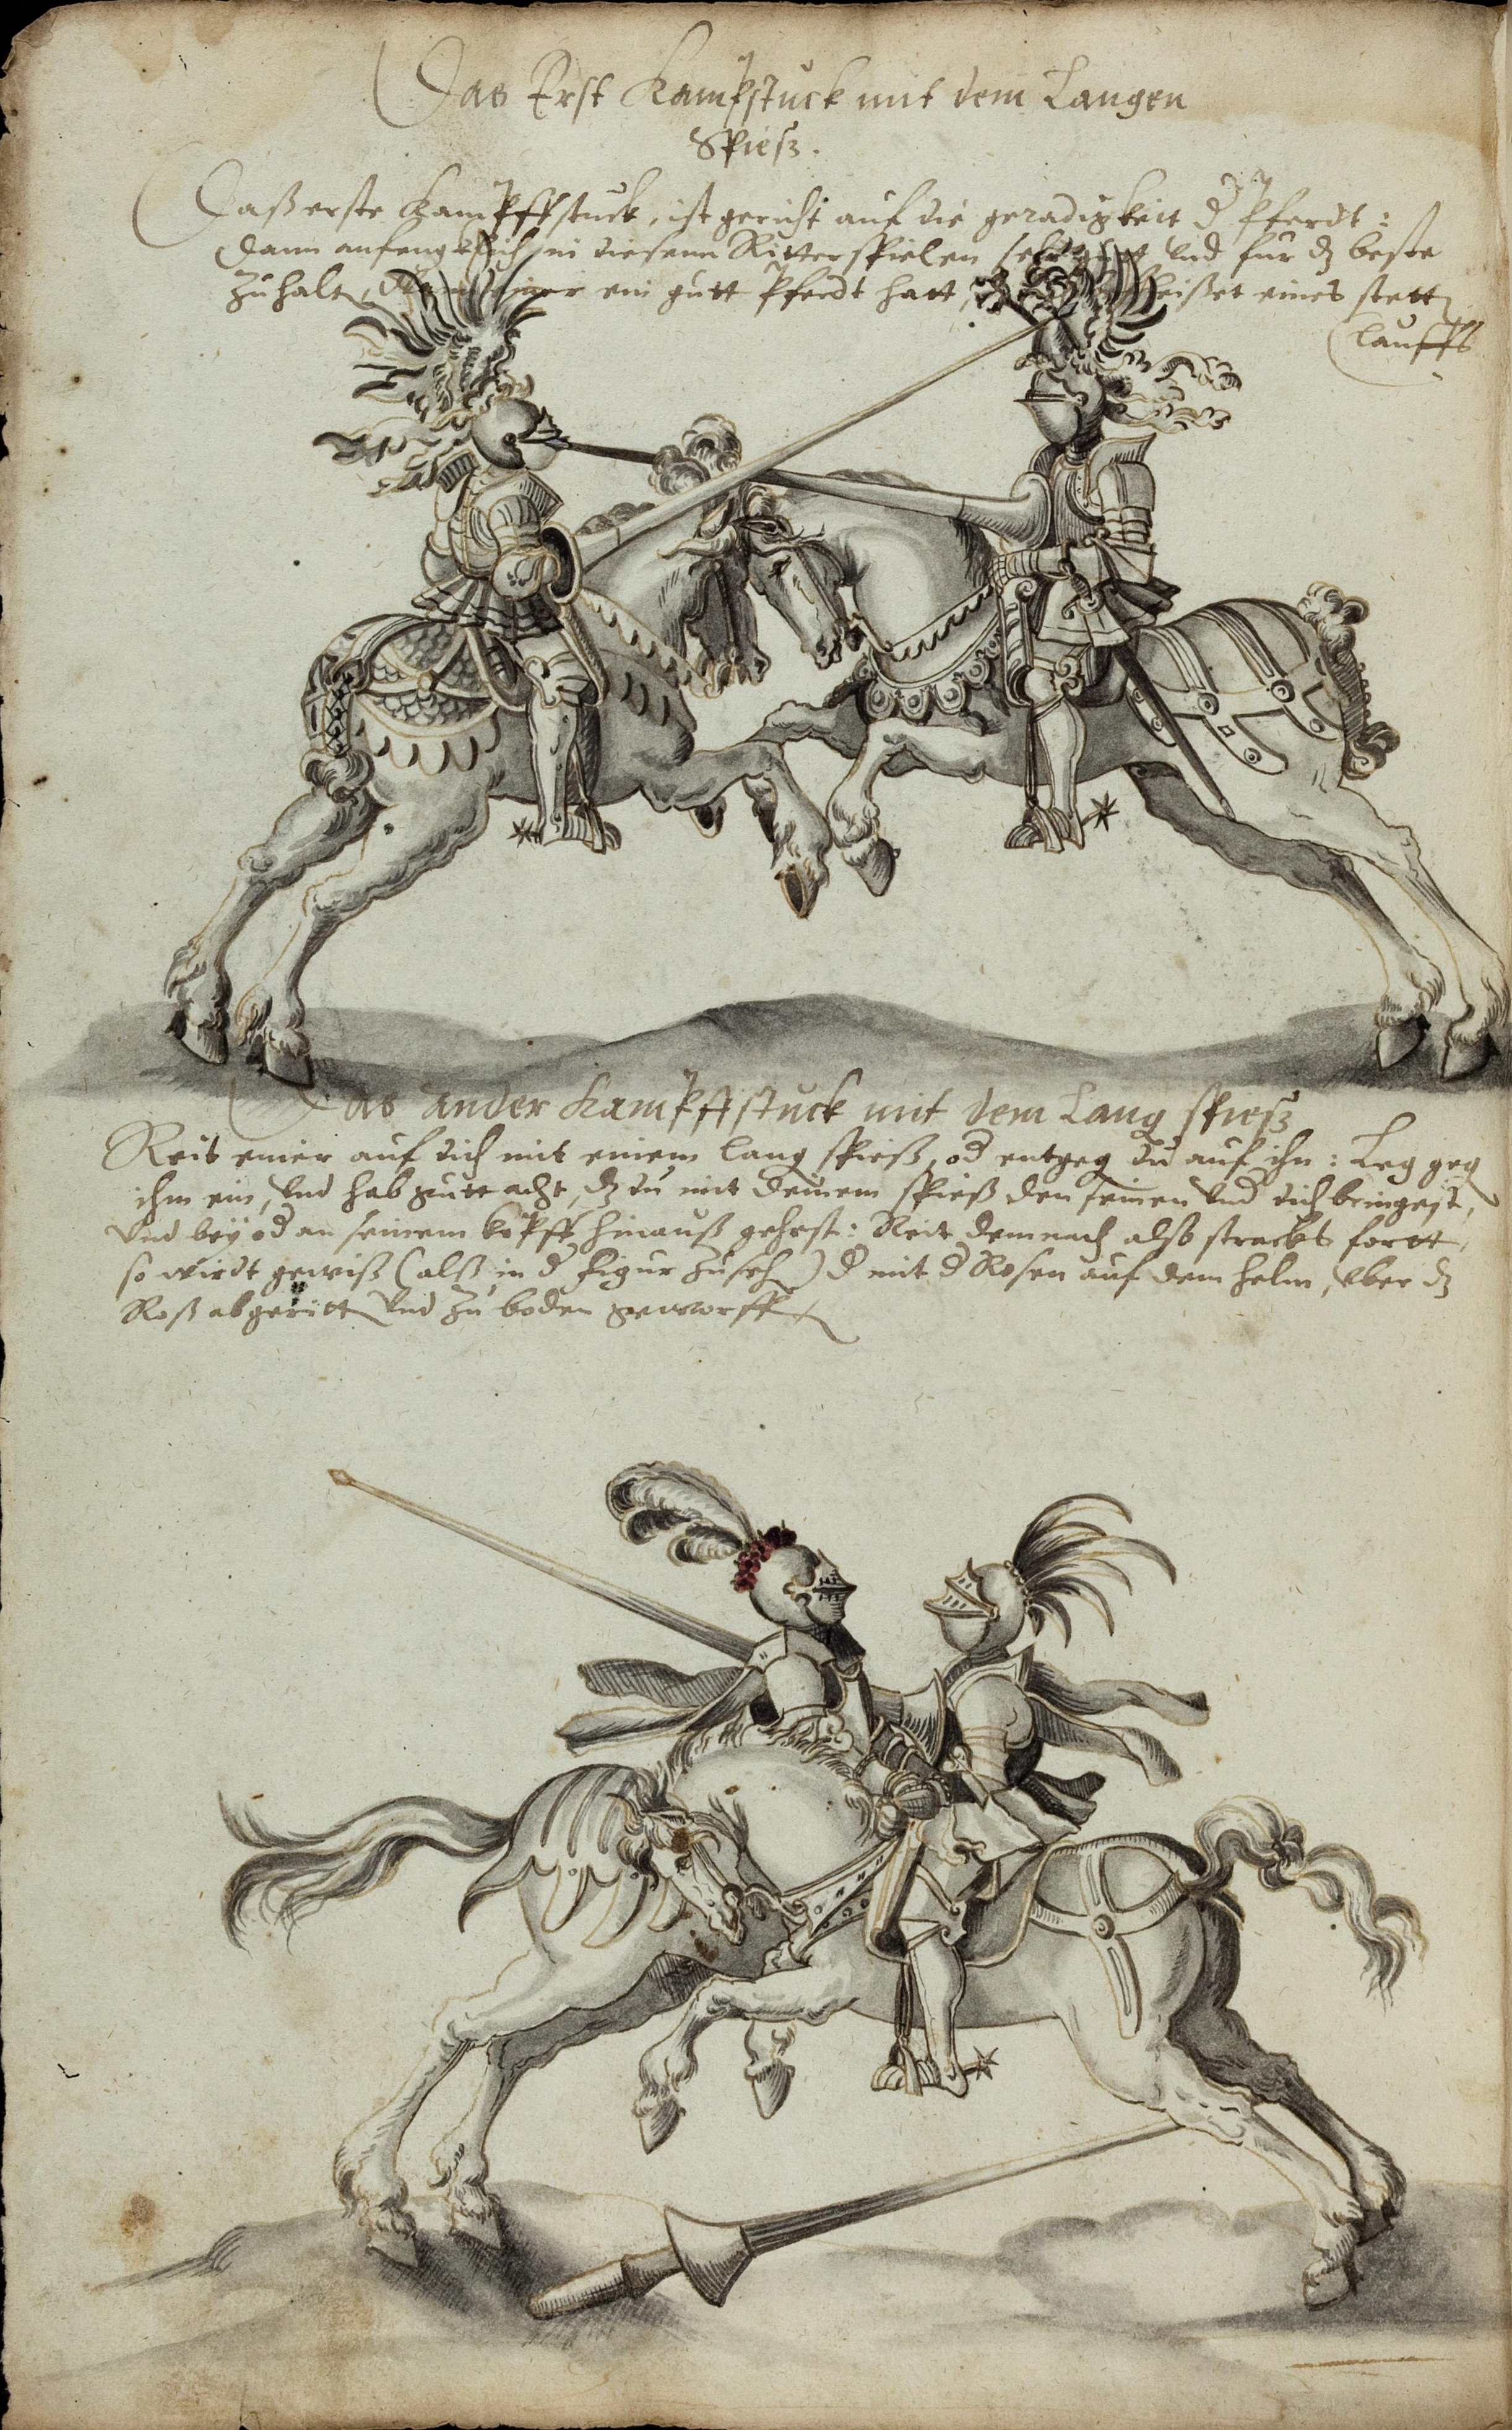 Das Erst Kampfstuck mit dem Langen
Spiesz.
Daß erste Kampffstuck, ist gericht auf die geradigkeit d Pferdt:
dann anfengklich in diesenn Ritterspielen sehr gutt vnd fur dz beste
zuhalt, einer ein gutt Pferdt hatt, heißet eines stett
lauffs
Das ander Kampffstuck mit dem Lang spiesz
Reit einer auf dich mit einem lang spieß, od entgeg du auf ihn: Leg geg
ihm ein, vnd hab gutt acht, dz du mit deinem spieß den seinen vnd dich bringest,
vnd bey od an seinem kopff hinauß gehest: Reit demnach alß stracks fortt,
so wirdt gewiß (alß in d figur zuseh) d mit d Rosen auf dem helm, vber dz
Roß abgeritt vnd zu boden geworff